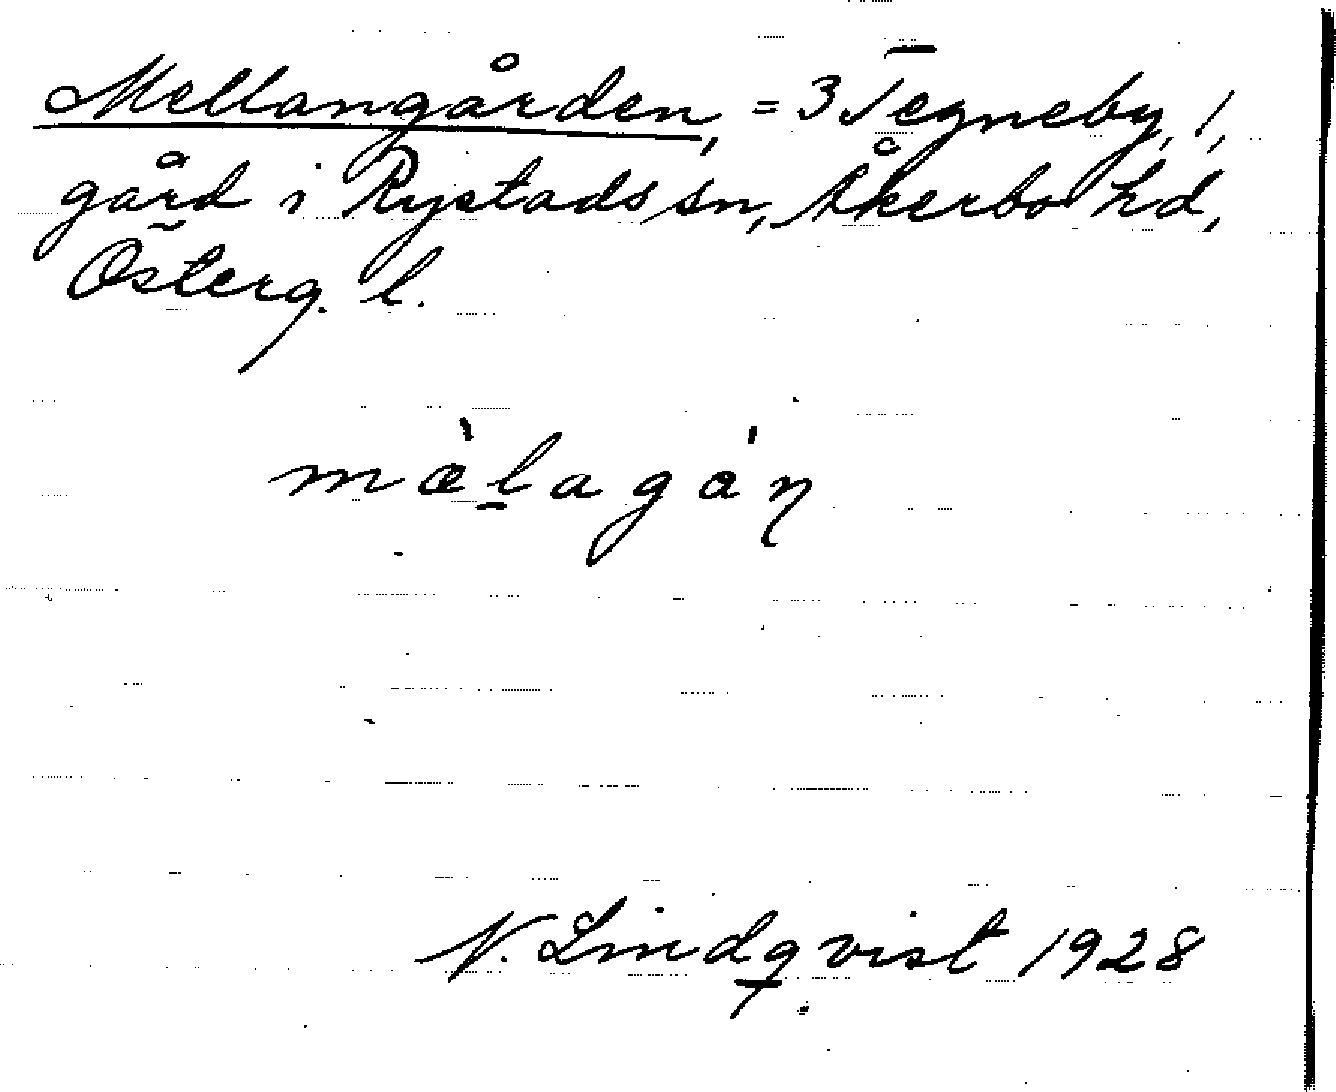 Mellangården, = 3 Tegneby, 1,
gård i Rystads sn, Åkerbo hd,
Österg. l.
mæ̀lagán
N. Lindqvist 1928